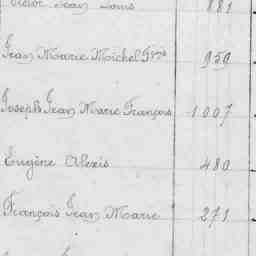 Victor Jean Louis 881
Jean Marie Michel Fçois 959
Joseph Jean Marie François 1.007
Eugène Alexis 480
François Jean Marie 271